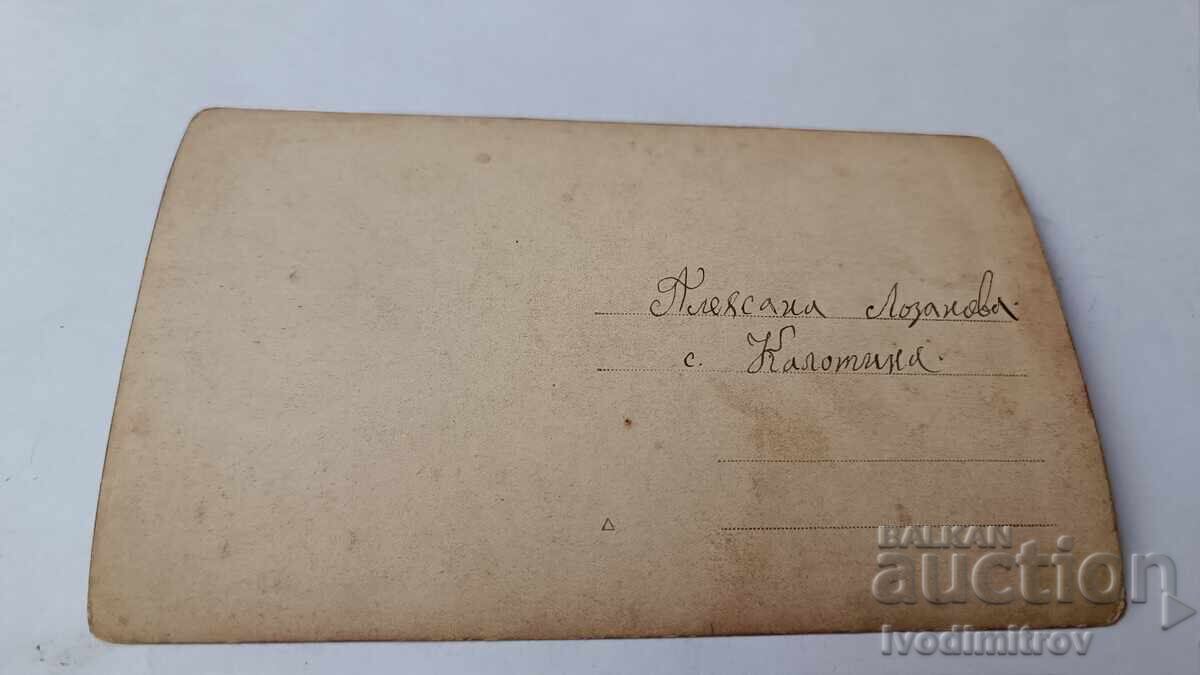 Алексана Лозанова.
с. Калотина.
BALKAN
auction
Ivodimitrov